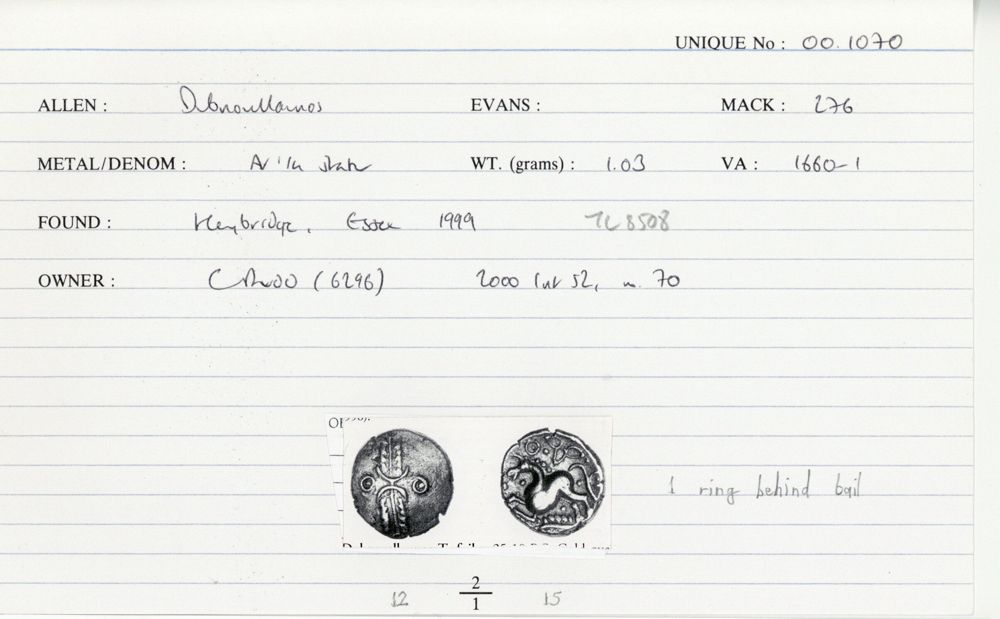 UNIQUE No : 00.1070
ALLEN : Dubnovellaunos EVANS : MACK : 276
METAL/DENOM : AV 1/4 stater WT. (grams) : 1.03 VA : 1660-1
FOUND : Heybridge, Essex 1999 TL 8508
OWNER : (6296) 2000 52, n. 70
1 ring behind bail
2
12 15
1